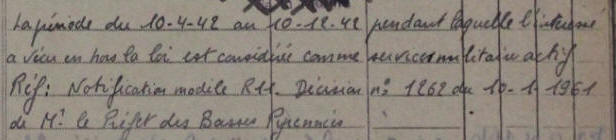 La période du 10-4-42 au 10-12-42 pendant laquelle l'intéressé
a vécu en hors la loi est considérée comme services militaire actif
Réf: Notification modèle R11. Décision n° 1262 du 10-1-1961
de Mr. le Préfet des Basses Pyrennées